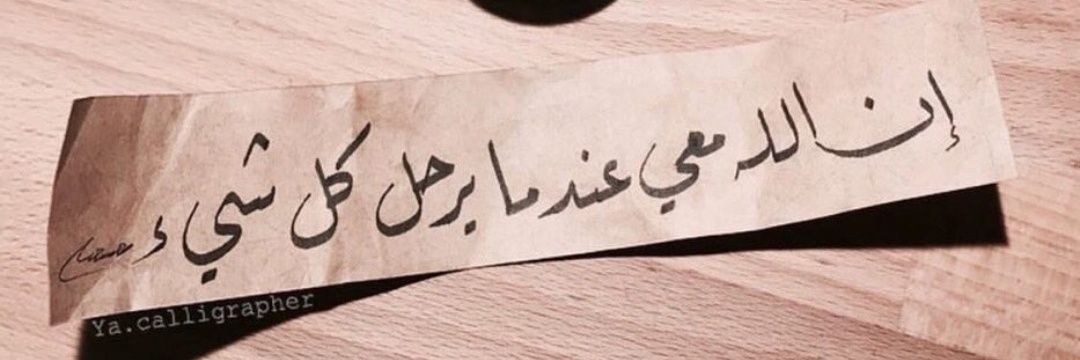 إن الله معي عندما يرحل كل شيء
Ya.calligrapher